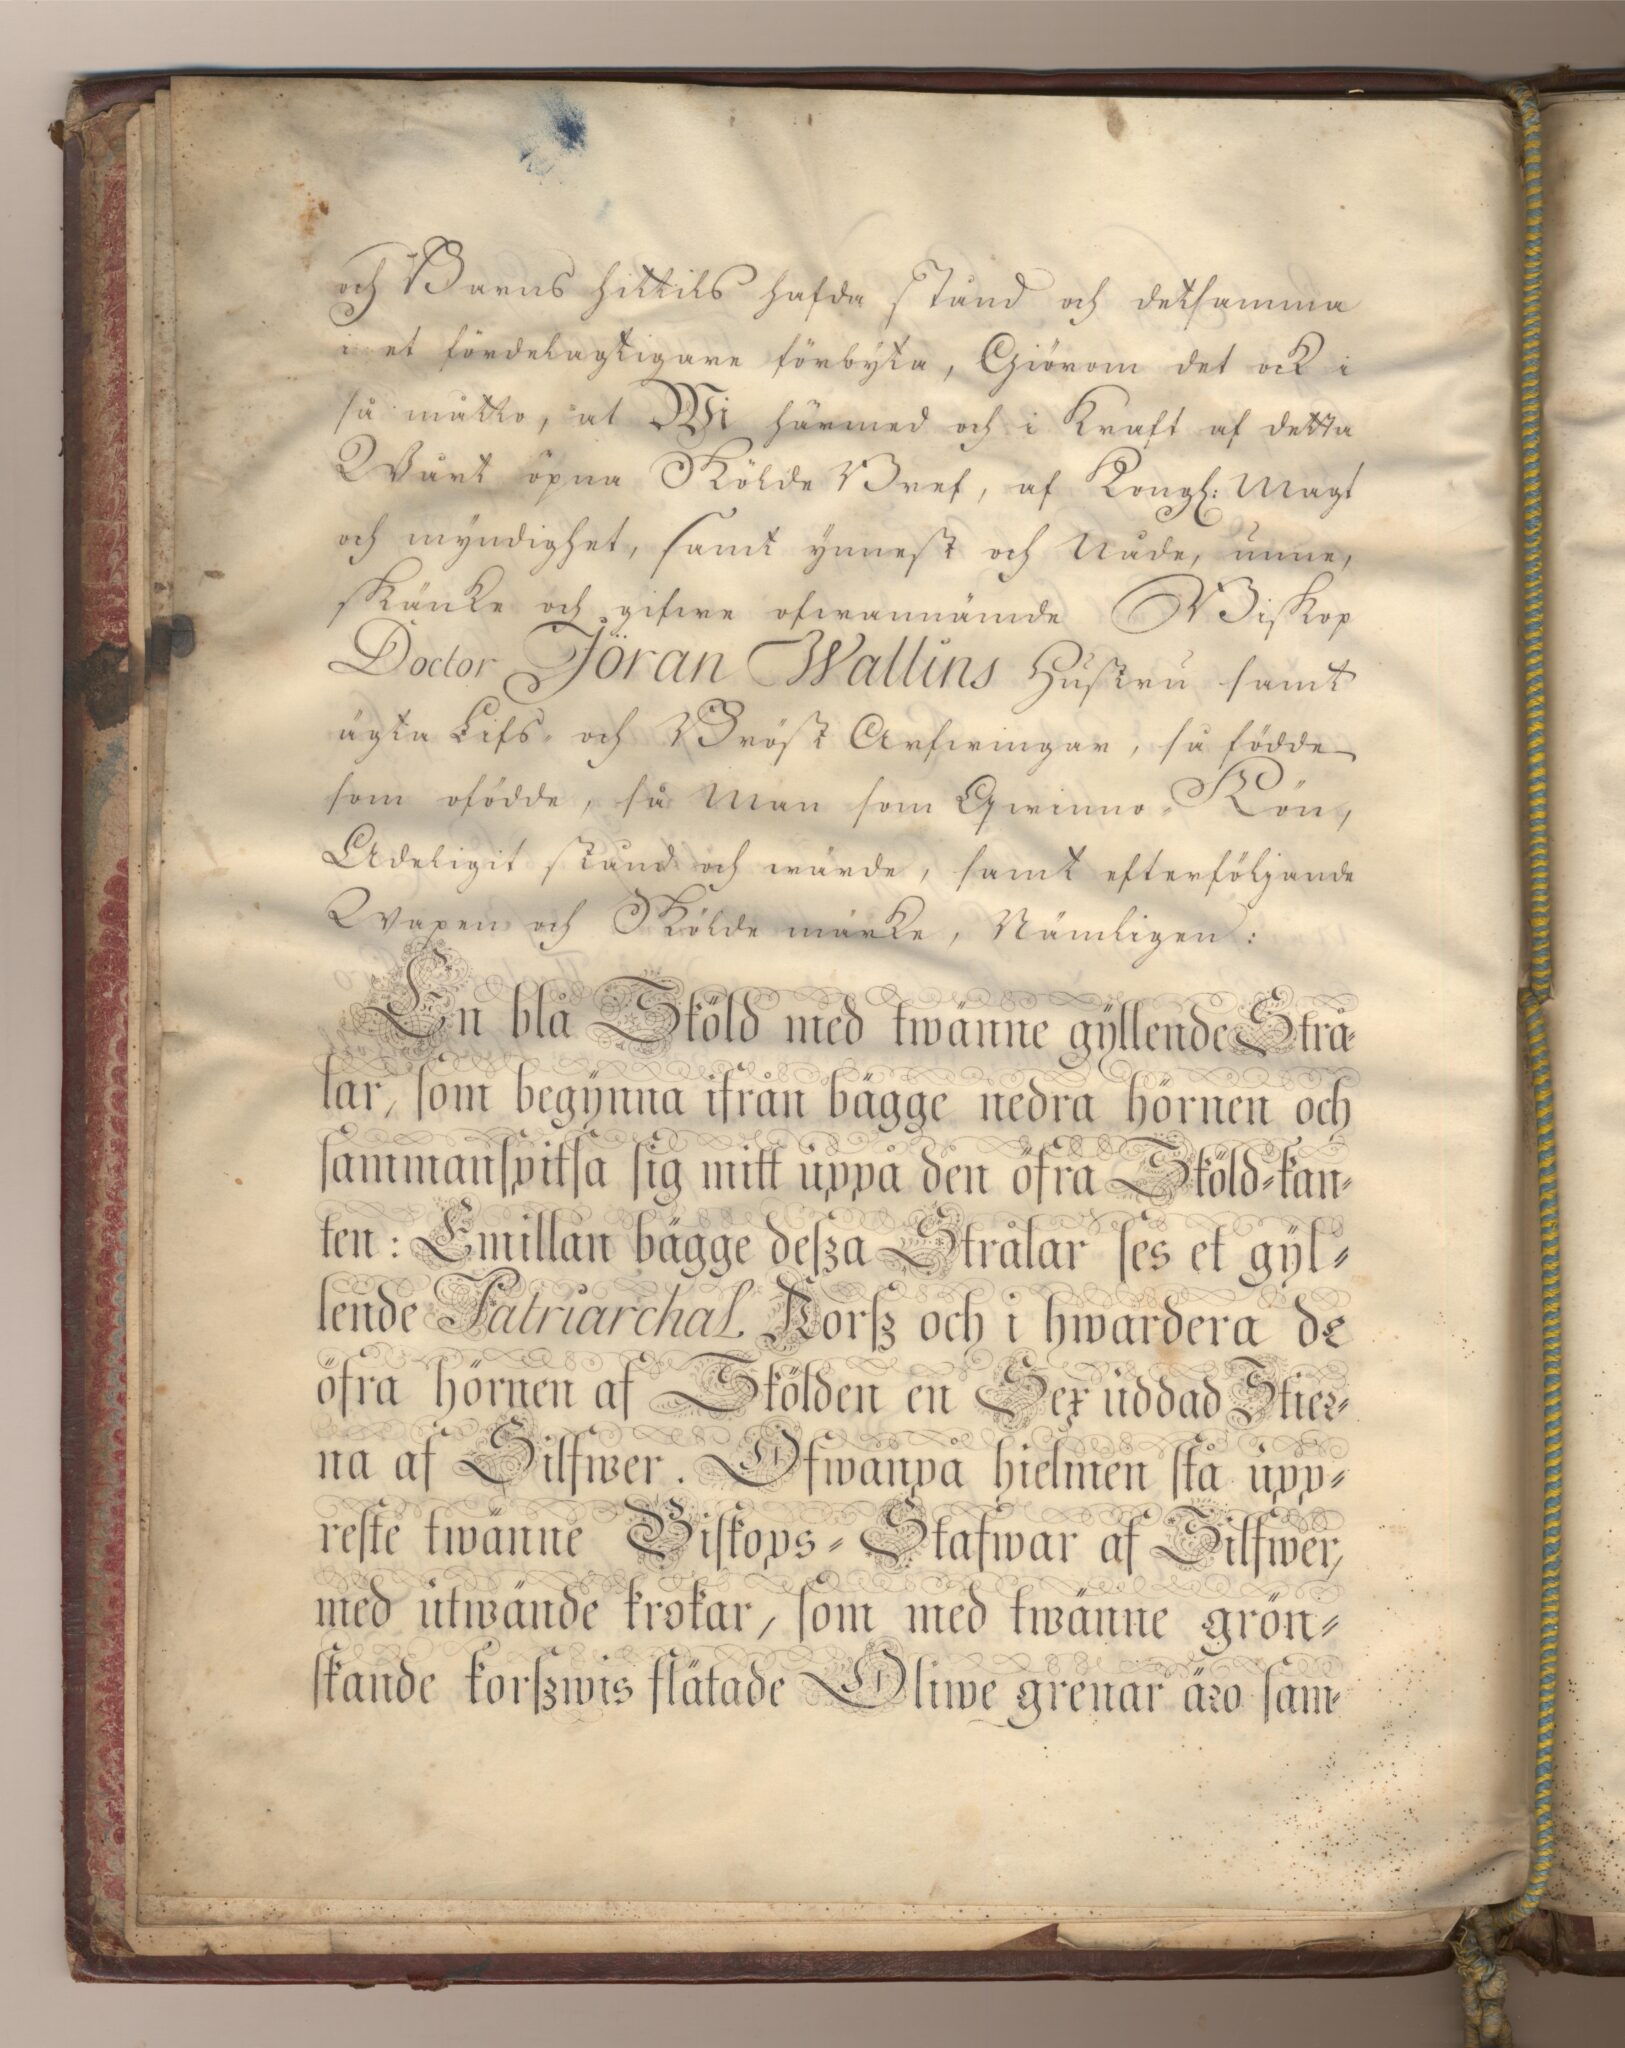 och Barns hittils hafda stånd och detsamma
i et fördelagtigare förbyta, Giörom det ock i
så måtto, at Wi härmed och i Kraft af detta
Wårt öpna Skölde Bref, af Kongl: Magt
och myndighet, samt ynnest och Nåde, unne,
skänke och gifwe ofwannämde Biskop
Doctor Jöran Wallins Hustru samt
ägta Lifs- och Bröst Arfwingar, så födde
som ofödde, så Man som Qwinno-Kön,
Adeligit stånd och wärde, samt efterföljande
Wapen och Skölde märke, Nämligen:
En blå Sköld med twänne gyllende Strå-
lar, som begynna ifrån bägge nedra hörnen och
sammanspitsa sig mitt uppå den öfra Sköld-kan-
ten: Emillan bägge desza Strålar ses et gyl-
lende Patriarchal Korsz och i hwardera de
öfra hörnen af Skölden en Sex uddad Stier-
na af Silfwer. Ofwanpå hielmen stå upp-
reste twänne Biskops-Stafwar af Silfwer,
med utwände krokar, som med twänne grön-
skande korszwis flätade Oliwe grenar äro sam-